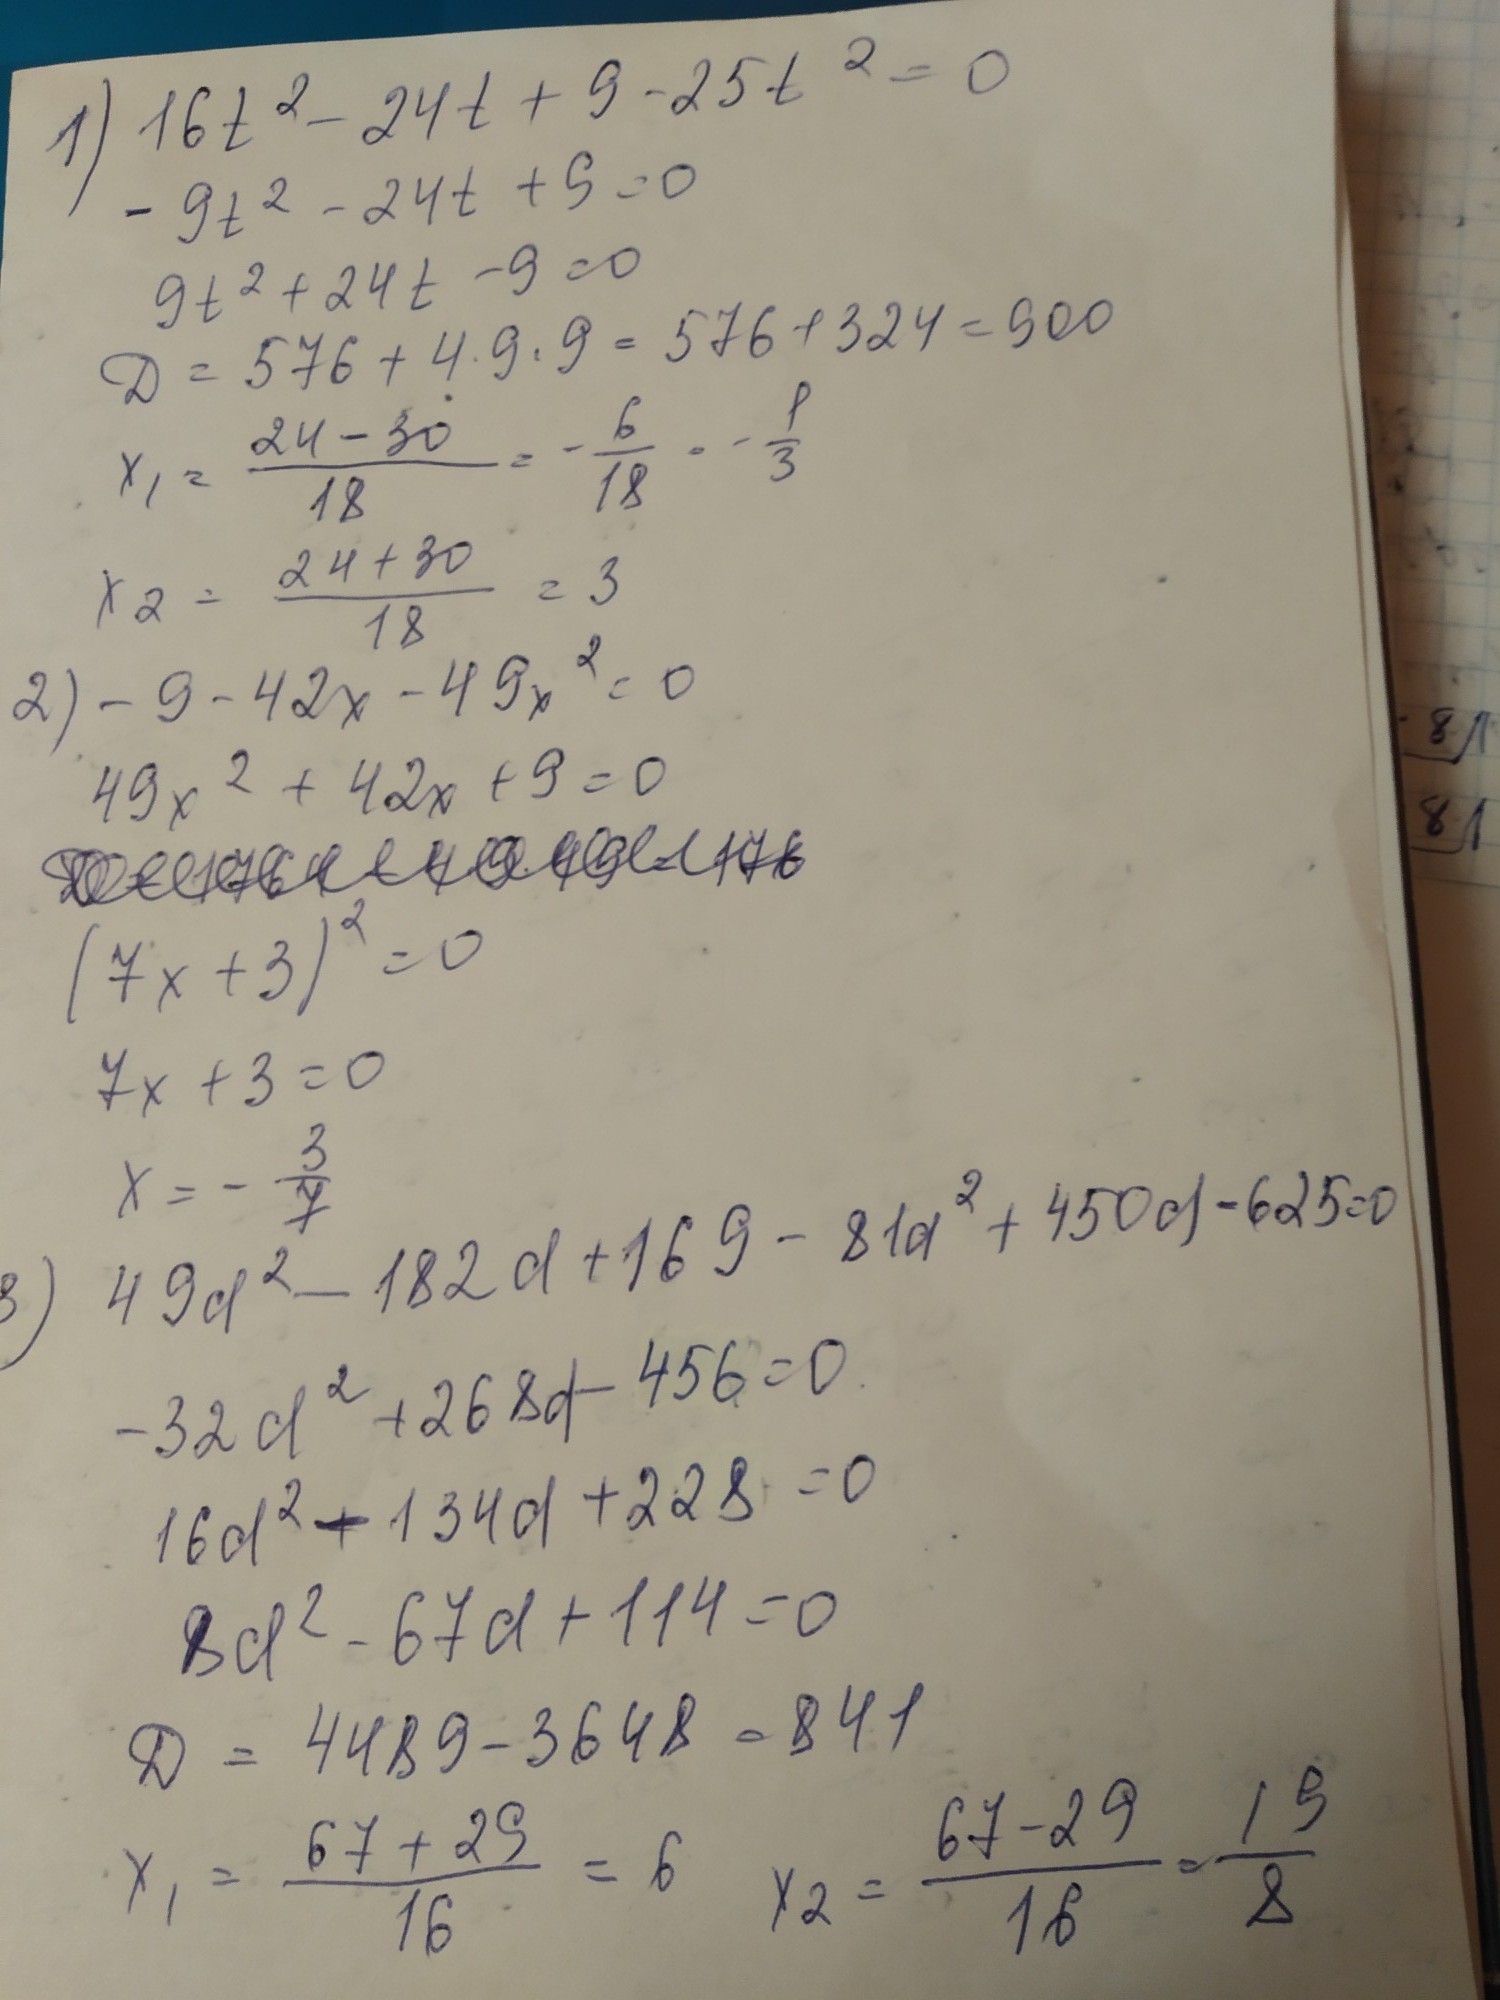 1) 16t² - 24t + 9 - 25t² = 0
- 9t² - 24t + 9 = 0
9t² + 24t - 9 = 0
D = 576 + 4·9·9 = 576 + 324 = 900
x₁ = (24 - 30)/18 = - 6/18 = - 1/3
x₂ = (24 + 30)/18 = 3
2) - 9 - 42x - 49x² = 0
49x² + 42x + 9 = 0
(7x + 3)² = 0
7x + 3 = 0
x = - 3/7
3) 49d² - 182d + 169 - 81d² + 450d - 625 = 0
- 32d² + 268d - 456 = 0
16d² - 134d + 228 = 0
8d² - 67d + 114 = 0
D = 4489 - 3648 = 841
x₁ = (67 + 29)/16 = 6 x₂ = (67 - 29)/16 = 19/8
81